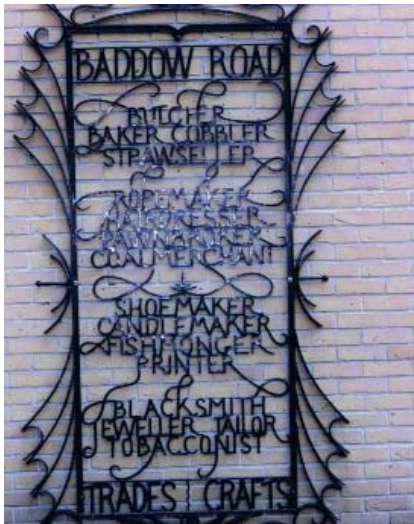 BADDOW ROAD
BUTCHER
BAKER COBBLER
STRAWSELLER
ROPEMAKER
HAIRDRESSER
PAWNBROKER
COALMERCHANT
SHOEMAKER
CANDLEMAKER
FISHMONGER
PRINTER
BLACKSMITH
JEWELLER TAILOR
TOBACCONIST
TRADES CRAFTS